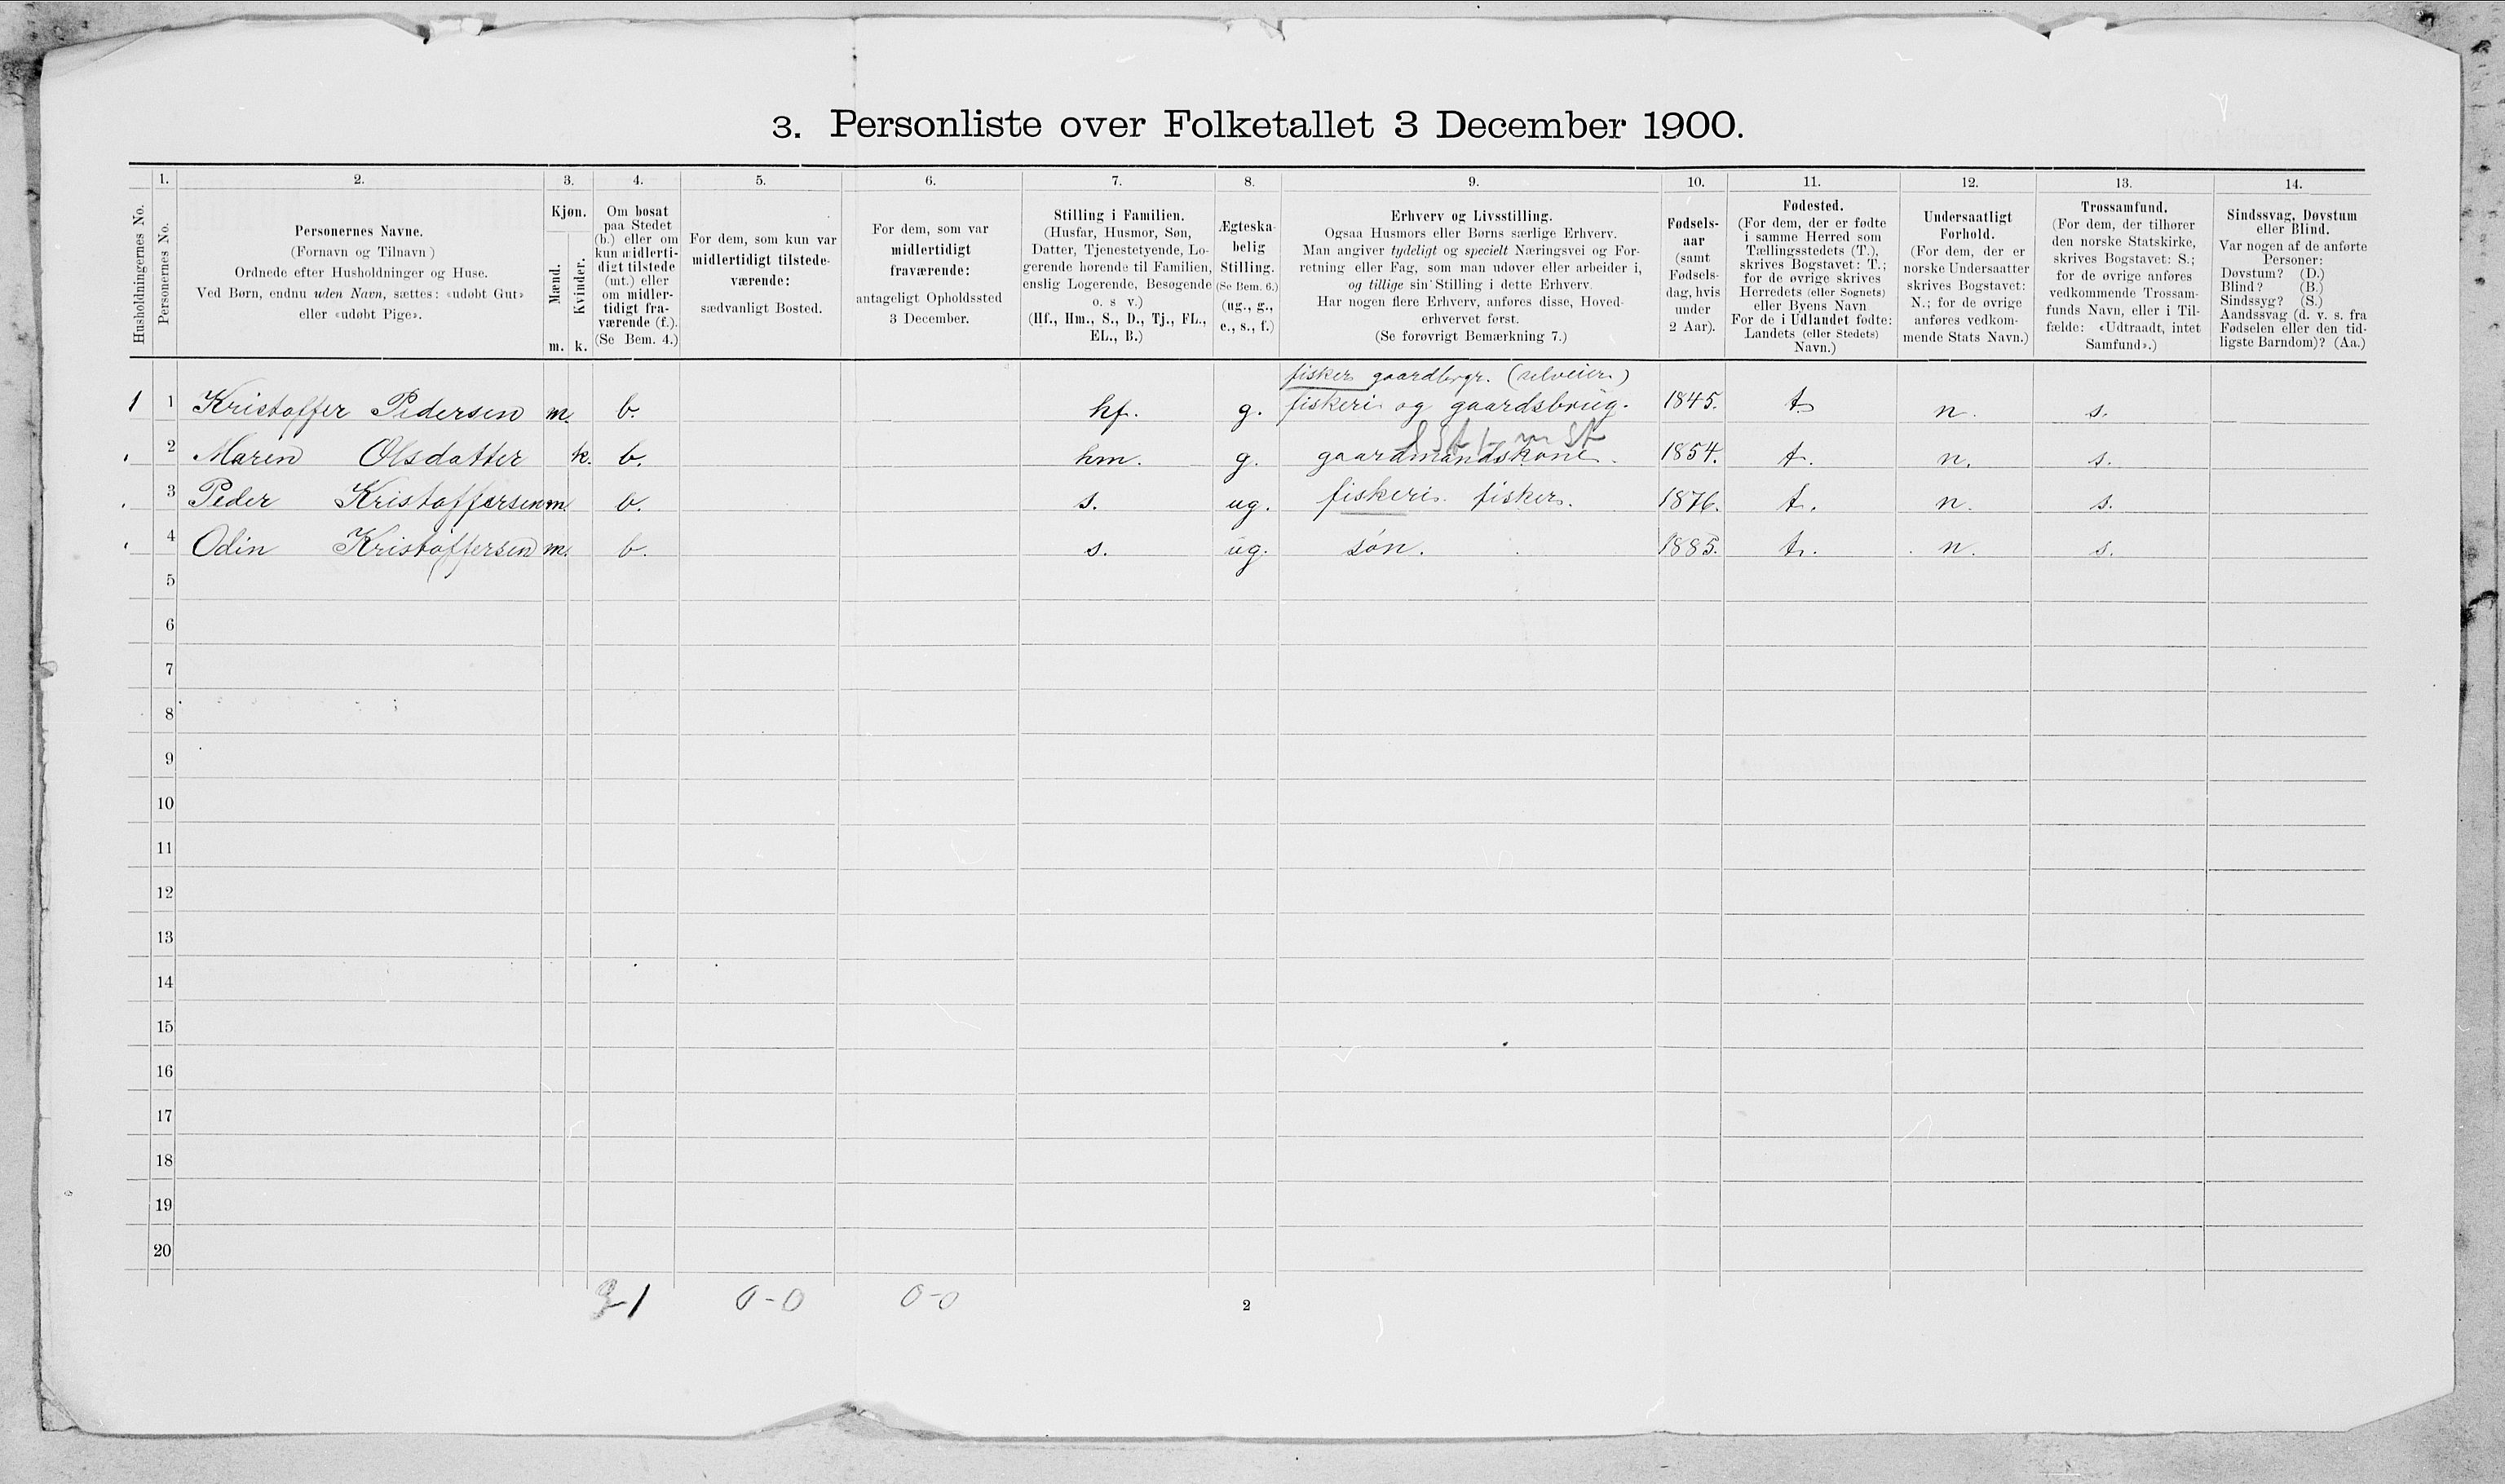 3. Personliste over Folketallet 3 December 1900.
Husholdningernes No.
1.
Personernes No.
2.
Personernes Navne.
(Fornavn og Tilnavn)
Ordnede efter Husholdninger og Huse.
Ved Børn, endnu uden Navn, sættes: «udøbt Gut»
eller «udøbt Pige».
3.
Kjøn.
Mænd.
Kvinder.
m. k.
4.
Om bosat
paa Stedet
(b.) eller om
kun midlerti-
digt tilstede
(mt.) eller
om midler-
tidigt fra-
værende (f.).
(Se Bem. 4.)
5.
For dem, som kun var
midlertidigt tilstede-
værende:
sædvanligt Bosted.
6.
For dem, som var
midlertidigt
fraværende:
antageligt Opholdssted
3 December.
7.
Stilling i Familien.
(Husfar, Husmor, Søn,
Datter, Tjenestetyende, Lo-
gerende hørende til Familien,
enslig Logerende, Besøgende
o. s v.)
(Hf., Hm., S., D., Tj., FL.,
EL., B.)
8.
Ægteska-
belig
Stilling.
(Se Bem. 6.)
(ug., g.,
e., s., f.)
9.
Erhverv og Livsstilling.
Ogsaa Husmors eller Børns særlige Erhverv.
Man angiver tydeligt og specielt Næringsvei og For-
retning eller Fag, som man udøver eller arbeider i,
og tillige sin Stilling i dette Erhverv.
Har nogen flere Erhverv, anføres disse, Hoved-
erhvervet først.
(Se forøvrigt Bemærkning 7.)
10.
Fødsels-
aar
(samt
Fødsels-
dag, hvis
under
2 Aar).
11.
Fødested.
(For dem, der er fødte
i samme Herred som
Tællingsstedets (T.),
skrives Bogstavet: T.;
for de øvrige skrives
Herredets (eller Sognets)
eller Byens Navn
For de i Udlandet fødte:
Landets (eller Stedets)
Navn.)
12.
Undersaatligt
Forhold.
(For dem, der er
norske Undersaatter
skrives Bogstavet:
N.; for de øvrige
anføres vedkom-
mende Stats Navn.)
13.
Trossamfund.
(For dem, der tilhører
den norske Statskirke,
skrives Bogstavet: S.;
for de øvrige anføres
vedkommende Trossam-
funds Navn, eller i Til-
fælde: «Udtraadt, intet
Samfund».)
14.
Sindssvag, Døvstum
eller Blind.
Var nogen af de anførte
Personer:
Døvstum? (D.)
Blind? (B.)
Sindssyg? (S.)
Aandssvag (d. v. s. fra
Fødselen eller den tid-
ligste Barndom)? (Aa.)
fisker gaardbrgr. (selveier)
1 1 Kristoffer Pedersen m. b. hf. g. fiskeri og gaardsbrug. 1845. t. n. s.
2 Maren Olsdatter k. b. hm. g. gaardmandskone. 1854. t. n. s.
3 Peder Kristoffersen m. b. s. ug. fiskeri. fisker. 1876. t. n. s.
4 Odin Kristoffersen m. b. s. ug. søn. 1885. t. n. s.
5
6
7
8
9
10
11
12
13
14
15
16
17
18
19
20
3-1 0-0 0-0
2